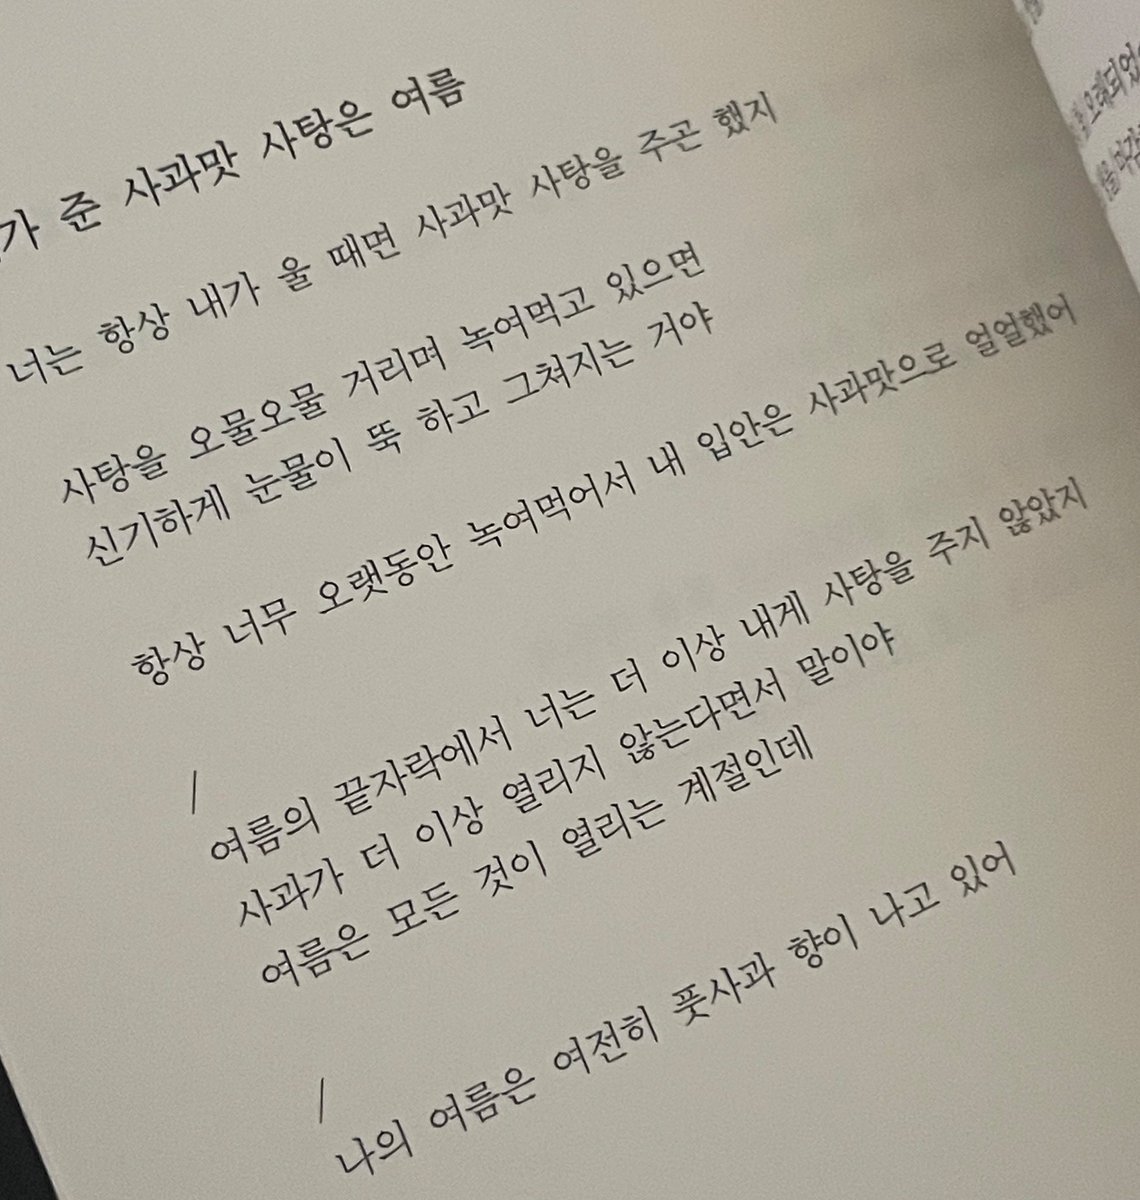 가 준 사과맛 사탕은 여름
너는 항상 내가 울 때면 사과맛 사탕을 주곤 했지
사탕을 오물오물 거리며 녹여먹고 있으면
신기하게 눈물이 뚝 하고 그쳐지는 거야
항상 너무 오랫동안 녹여먹어서 내 입안은 사과맛으로 얼얼했어
/
여름의 끝자락에서 너는 더 이상 내게 사탕을 주지 않았지
사과가 더 이상 열리지 않는다면서 말이야
여름은 모든 것이 열리는 계절인데
/
나의 여름은 여전히 풋사과 향이 나고 있어